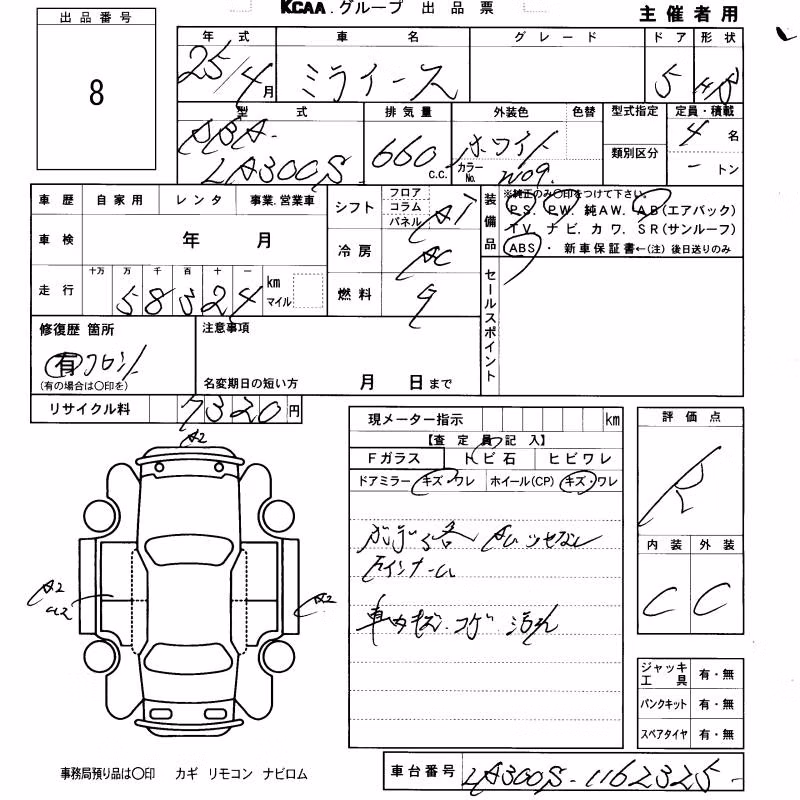 KCAA.グループ 出品票
主催者用
出品番号
8
年式 車名 グレード ドア 形状
25/4月 ミライース 5 H/B
型式 排気量 外装色 色替 型式指定 定員・積載
DBA-
LA300S 660 c.c. ホワイト カラーNo. W09 類別区分 4名
-トン
車歴 自家用 レンタ 事業.営業車
シフト フロア コラム パネル AT
装備品 ※純正のみ〇印をつけて下さい。
P.S. P.W. 純AW. AB(エアバック)
TV. ナビ. カワ. SR(サンルーフ)
ABS ・ 新車保証書←(注) 後日送りのみ
車検 年 月
冷房 AC
走行 十万 万 千 百 十 一
58324 km マイル
燃料 ガ
セールスポイント
修復歴 箇所
有 フロント
(有の場合は〇印を)
注意事項
名変期日の短い方 月 日まで
リサイクル料 7320円
現メーター指示 km
【査定員記入】
Fガラス トビ石 ヒビワレ
ドアミラー キズ・ワレ ホイール(CP) キズ・ワレ
ボデー各
車内キズ.コゲ.汚れ
評価点
R
内装 外装
C C
A2
A2
A2
ジャッキ工具 有・無
パンクキット 有・無
スペアタイヤ 有・無
事務局預り品は〇印 カギ リモコン ナビロム
車台番号 LA300S-1162325-